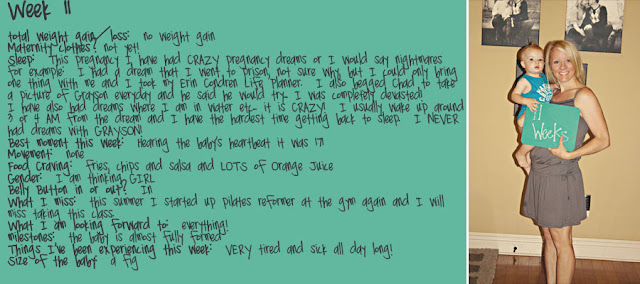 Week 11
total weight gain/loss: no weight gain
Maternity clothes? not yet!
Sleep: This pregnancy I have had CRAZY pregnancy dreams or I would say nightmares
for example: I had a dream that I went to prison, not sure why but I could only bring
one thing with me and I took my Erin Condren Life Planner. I also begged Chad to take
a picture of Grayson everyday and he said he would try. I was completely devastated!
I have also had dreams where I am in water etc- it is CRAZY! I usually wake up around
3 or 4 AM from the dream and I have the hardest time getting back to sleep. I NEVER
had dreams with GRAYSON!
Best moment this week: Hearing the baby's heartbeat it was 171!
Movement: none
Food Craving: Fries, chips and salsa and LOTS of Orange Juice
Gender: I am thinking GIRL
Belly Button in or out? In
What I miss: this summer I started up pilates reformer at the gym again and I will
miss taking this class
What I am looking forward to: everything!
milestones: the baby is almost fully formed
Things I've been experiencing this week: VERY tired and sick all day long!
Size of the baby: a fig
11
Weeks